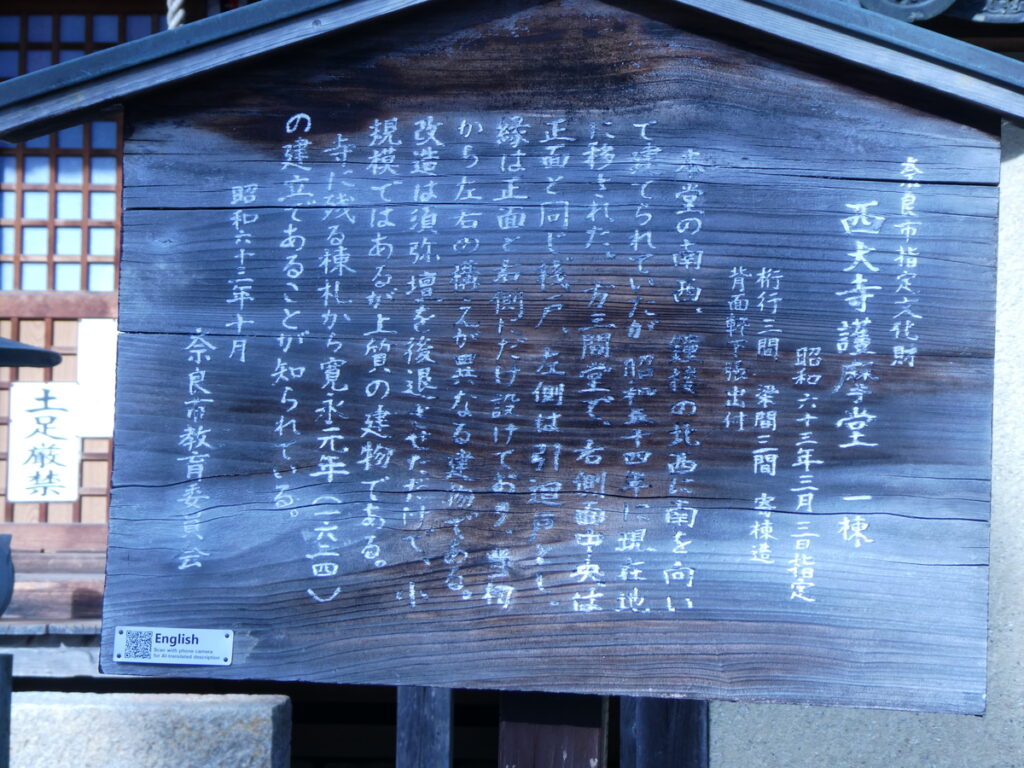 奈良市指定文化財
西大寺護摩堂 一棟
昭和六十三年三月三日指定
桁行三間 梁間三間 寄棟造
背面軒下張出付
本堂の南西、鐘楼の北西に南を向い
て建てられていたが昭和五十四年に現在地
に移された。方三間堂で、右側面中央は
正面と同じ桟戸、左側は引違戸とし、
縁は正面と右側だけ設けており、当初
から左右の構えが異なる建物である。
改造は須弥壇を後退させただけで、小
規模ではあるが上質の建物である。
寺に残る棟札から寛永元年(一六二四)
の建立であることが知られている。
昭和六十三年十月
奈良市教育委員会
土足厳禁
English
Scan with phone camera
for AI-translated description